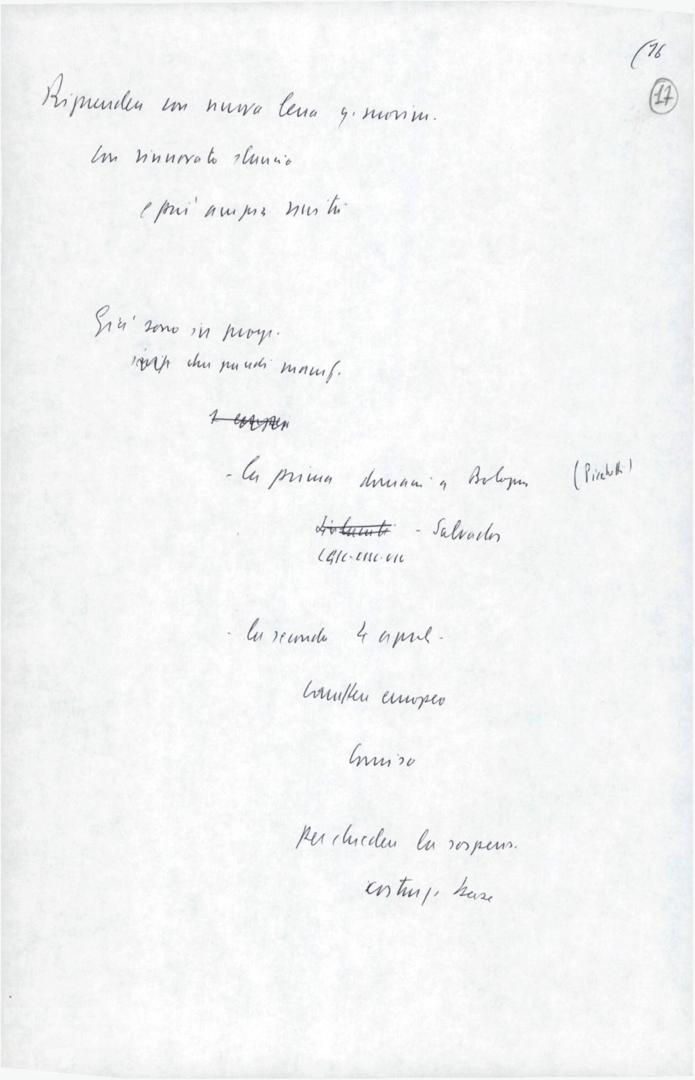 (16
17
Riprender con nuova lena q. movim.
con rinnovato slancio
e più ampia unità
Già sono in progr.
due grandi manif.
- la prima domani a Bologna (Picchetti)
- Salvador
- la seconda 4 april.
carattere europeo
Comiso
per chieder la sospens.
costruz. base